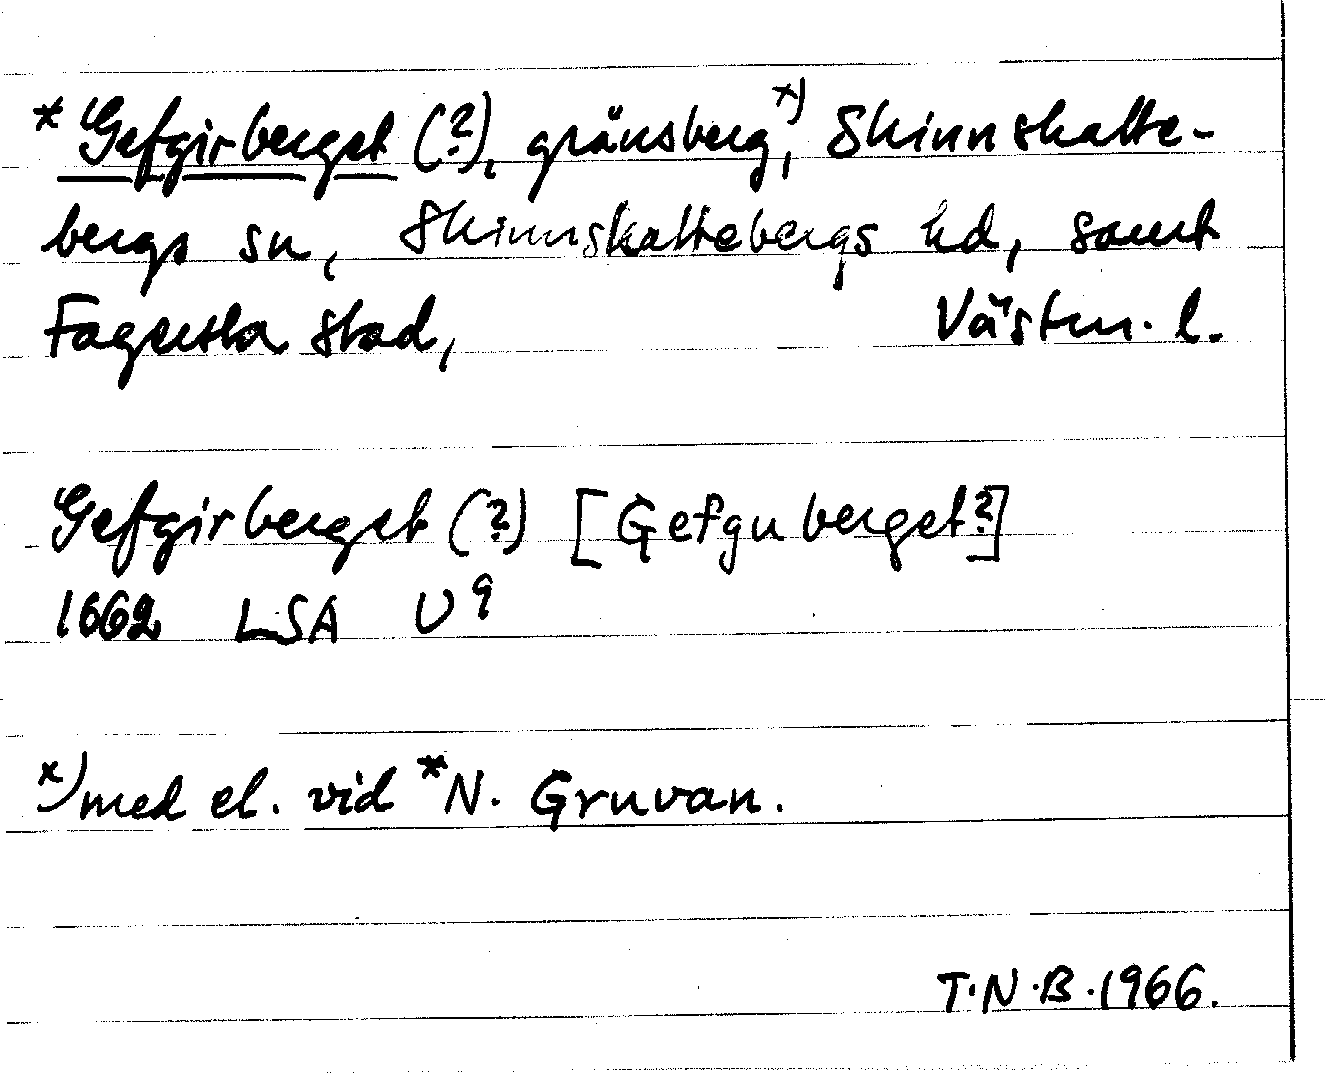 *Gefgirberget (?), gränsberg,ˣ⁾ Skinnskatte-
bergs sn, Skinnskattebergs hd, samt
Fagersta stad, Västm. l.
Gefgirberget (?) [Gefguberget?]
1662 LSA U⁹
ˣ⁾med el. vid *N. Gruvan.
T.N.B. 1966.